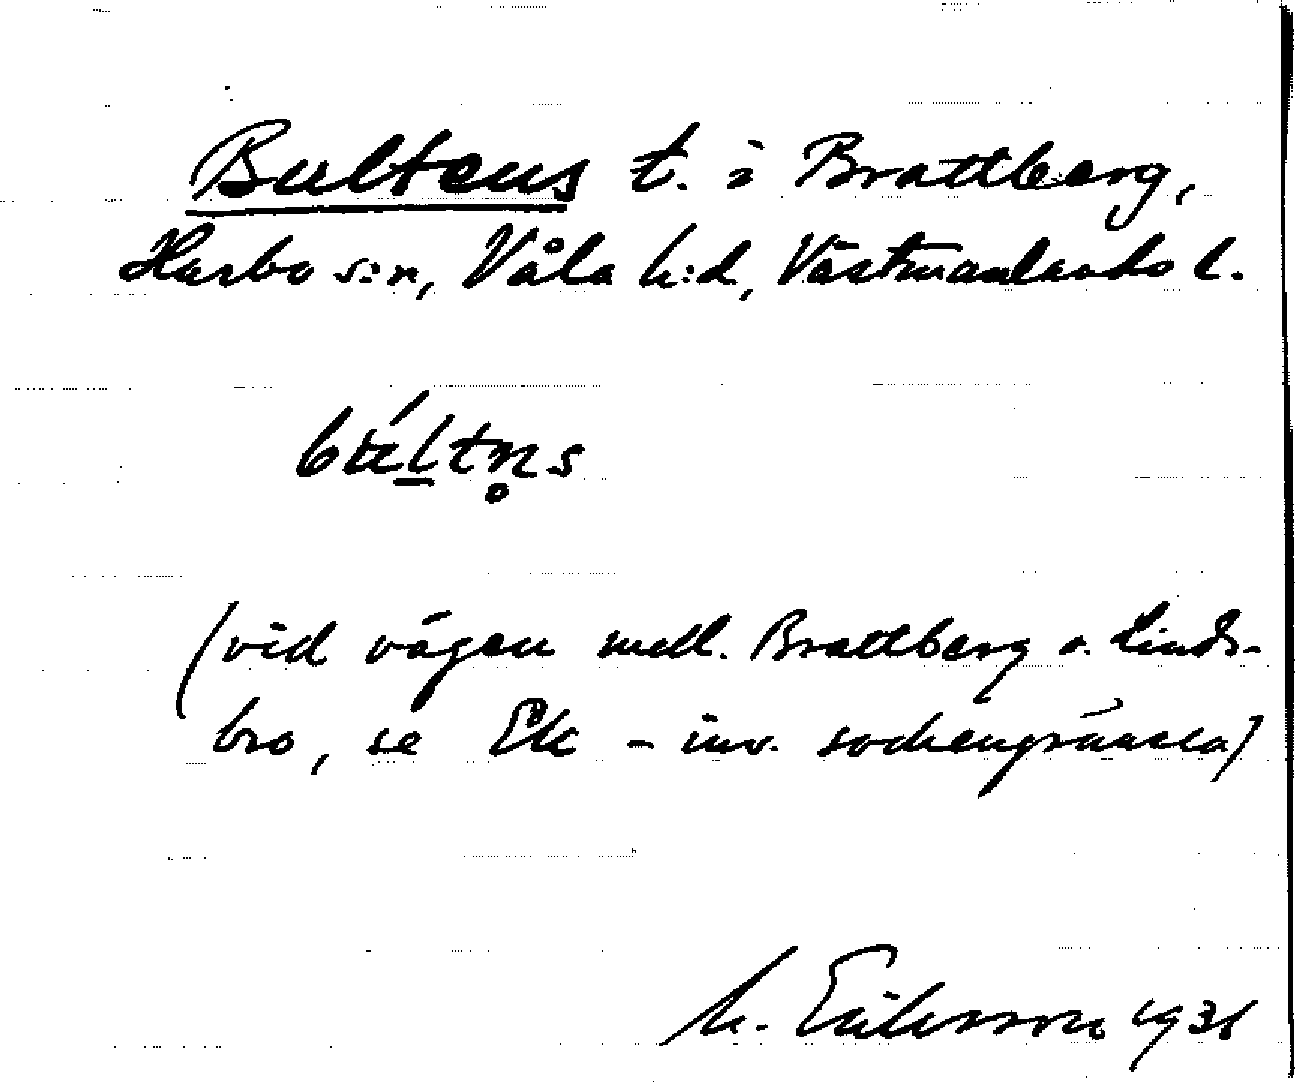 Bultens t. i Brattberg,
Harbo s:n, Våla h:d, Västmanlands l.
(vid vägen mell. Brattberg o. Linds-
bro, se Ek - inv. sockengränsen)
M. Eriksson 1931